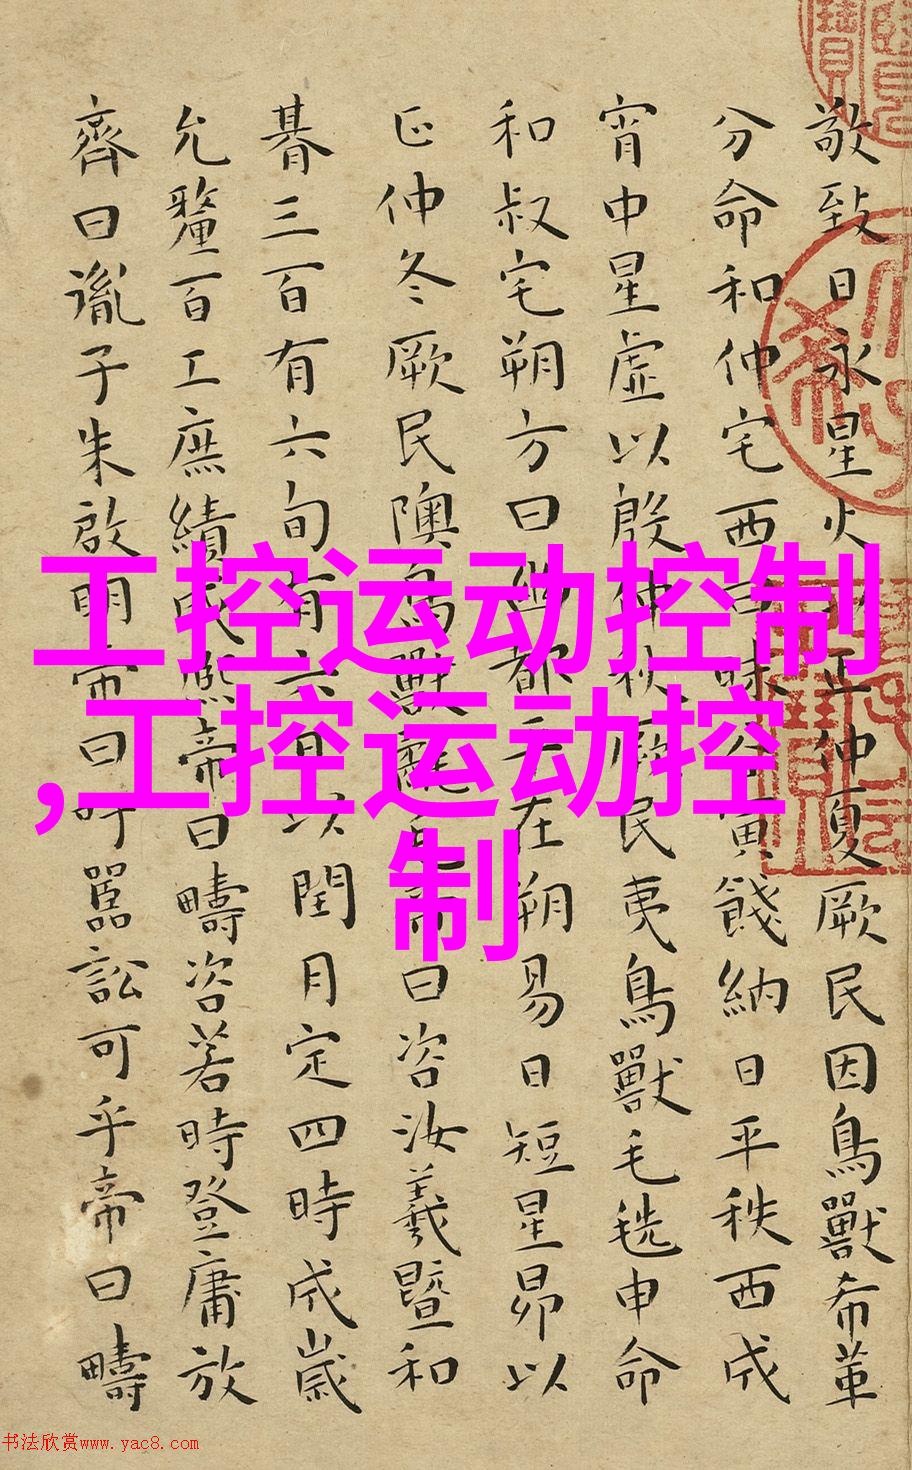 工控运动控制
,工控运动控
制
敬致日永星火正仲夏厥民因鳥獸希革
分命和仲宅西曰昧谷寅餞納日平秩西成
宵中星虛以殷仲秋厥民夷鳥獸毛毨申命
和叔宅朔方曰幽都平在朔易日短星昴以
正仲冬厥民隩鳥獸氄毛帝曰咨汝羲暨和
朞三百有六旬有六日以閏月定四時成歲
允釐百工庶績咸熙帝曰疇咨若時登庸放
齊曰胤子朱啟明帝曰吁嚚訟可乎帝曰疇
书法欣赏www.yac8.com